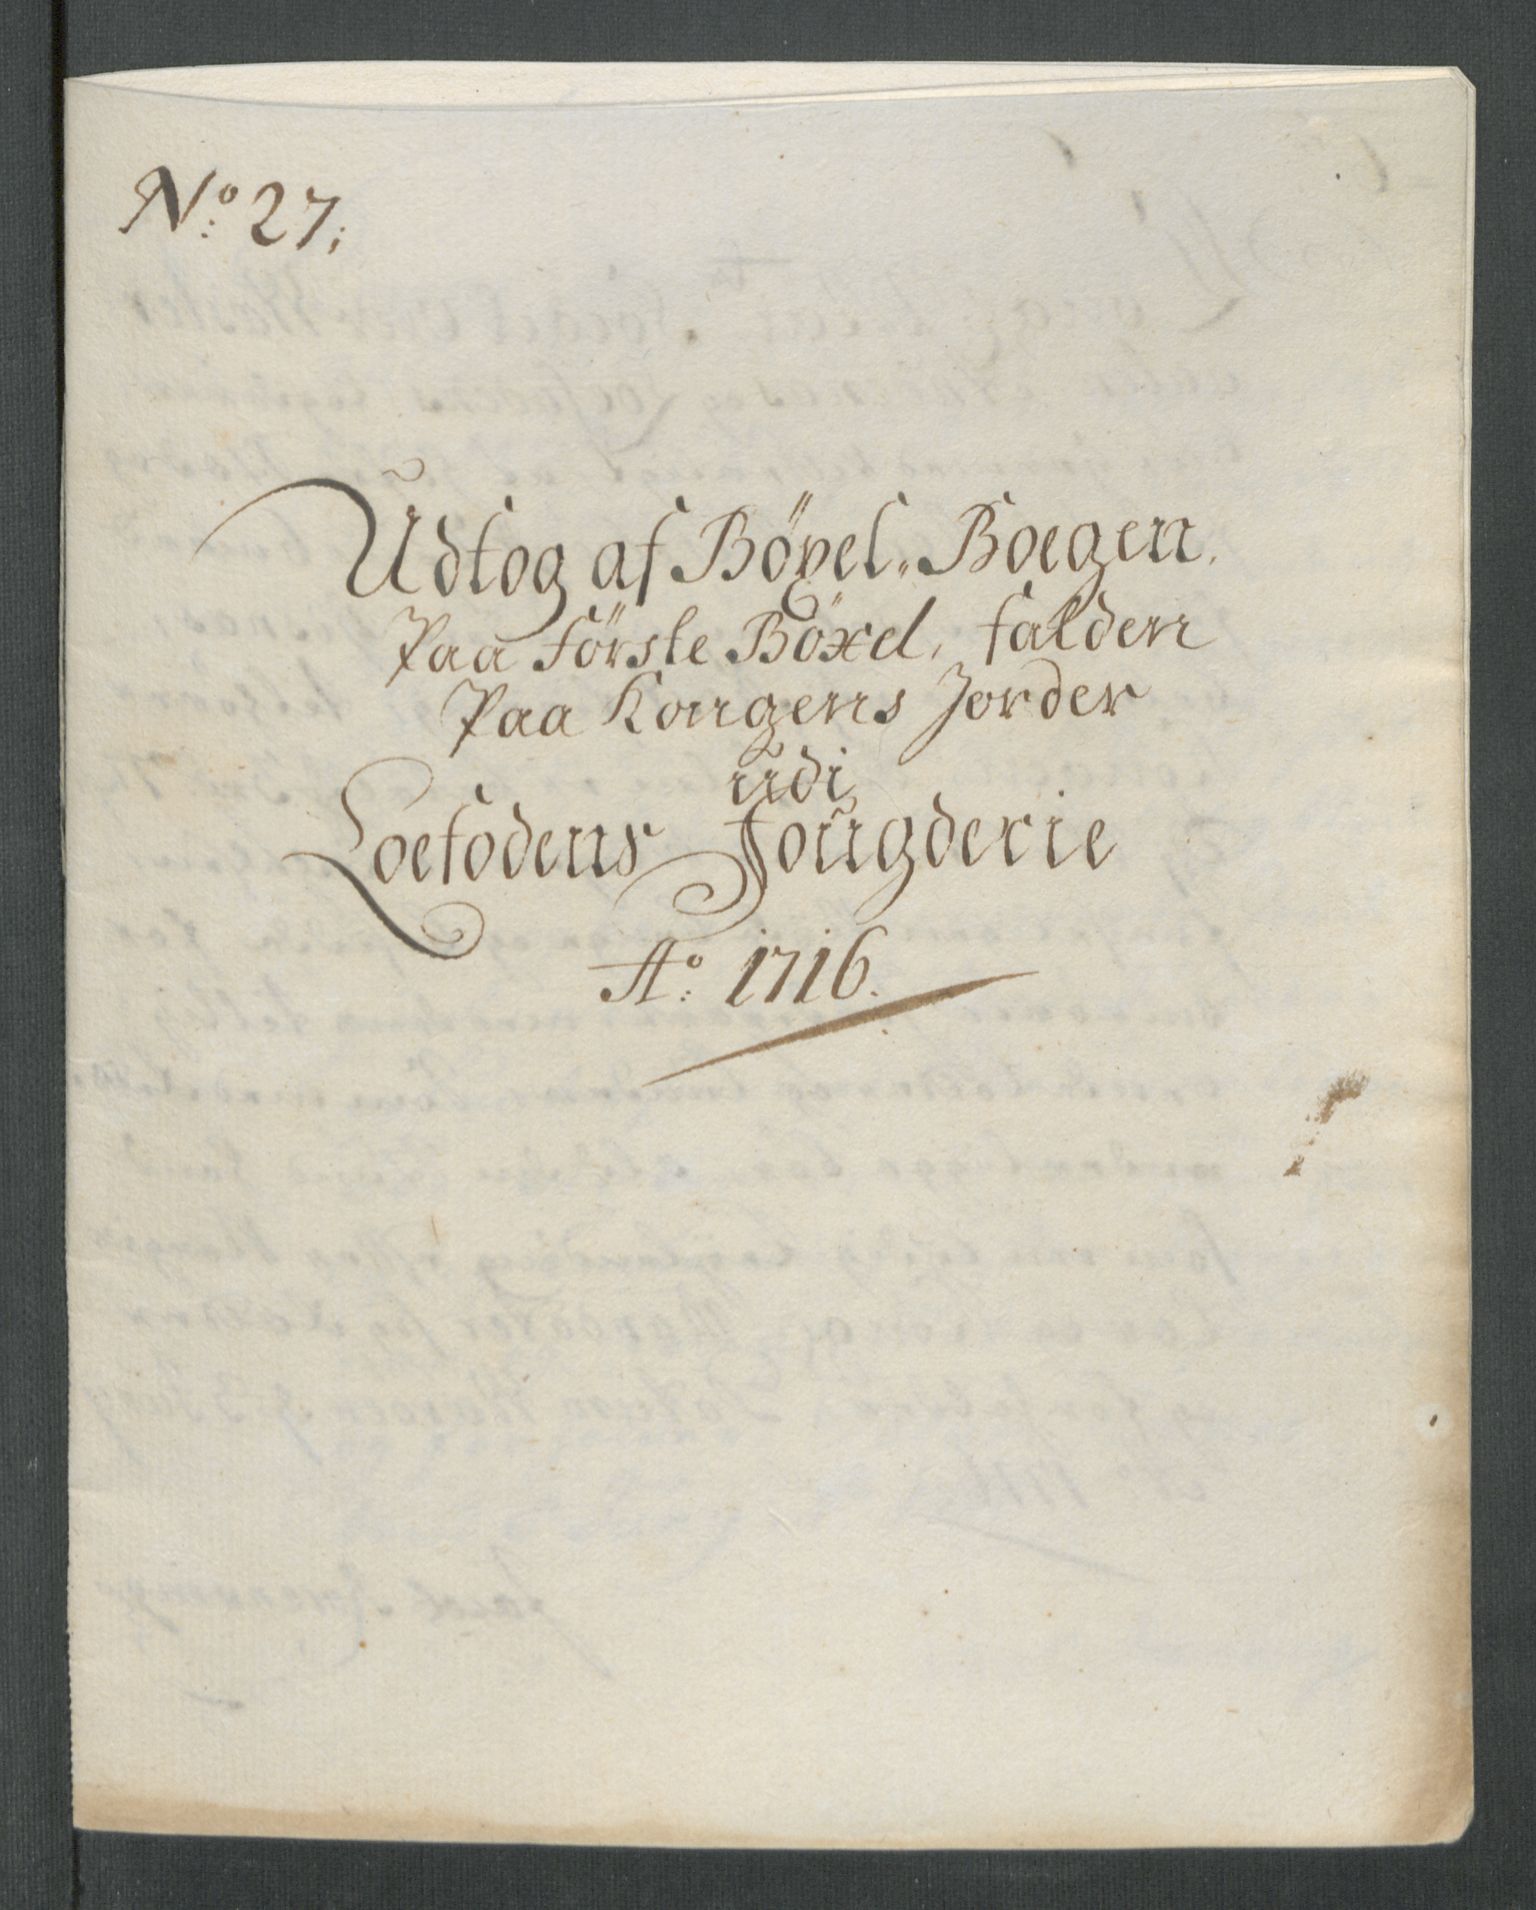 No: 27;
Udtog af Böxel. Boegen.
Paa Förste Böxel, falden
Paa Kongens Jorder
udi
Loefodens Fougderie
Ao: 1716.